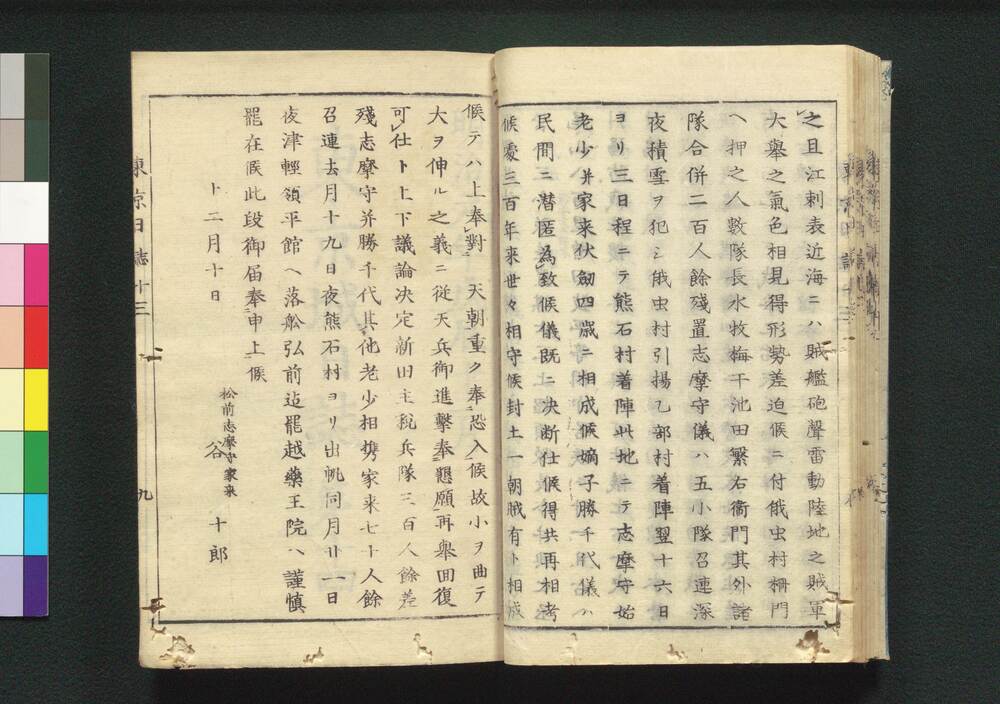 之且江刺表近海ニハ賊艦砲聲雷動陸地之賊軍
大擧之氣色相見得形勢差迫候ニ付俄虫村柵門
ヘ押之人數隊長水牧梅干池田繁右衞門其外諸
隊合併二百人餘殘置志摩守儀ハ五小隊召連深
夜積雪ヲ犯シ俄虫村引揚乙部村着陣翌十六日
ヨリ三日程ニテ熊石村着陣此地ニテ志摩守始
老少并家来伏劔四歳ニ相成候嫡子勝千代儀ハ
民間ニ潜匿為致候儀既ニ决断仕候得共再相考
候處三百年来世々相守候封土一朝賊有ト相成
候テハ上奉對　天朝重ク奉恐入候故小ヲ曲テ
大ヲ伸ル之義ニ従天兵御進擊奉懇願再擧回復
可仕ト上下議論决定新田主税兵隊三百人餘差
殘志摩守并勝千代其他老少相携家来七十人餘
召連去月十九日夜熊石村ヨリ出帆同月廿一日
夜津輕領平館ヘ落舩弘前迠罷越藥王院ヘ謹愼
罷在候此段御届奉申上候
十二月十日
松前志摩守家来
谷　十郎
東京日誌十三
九